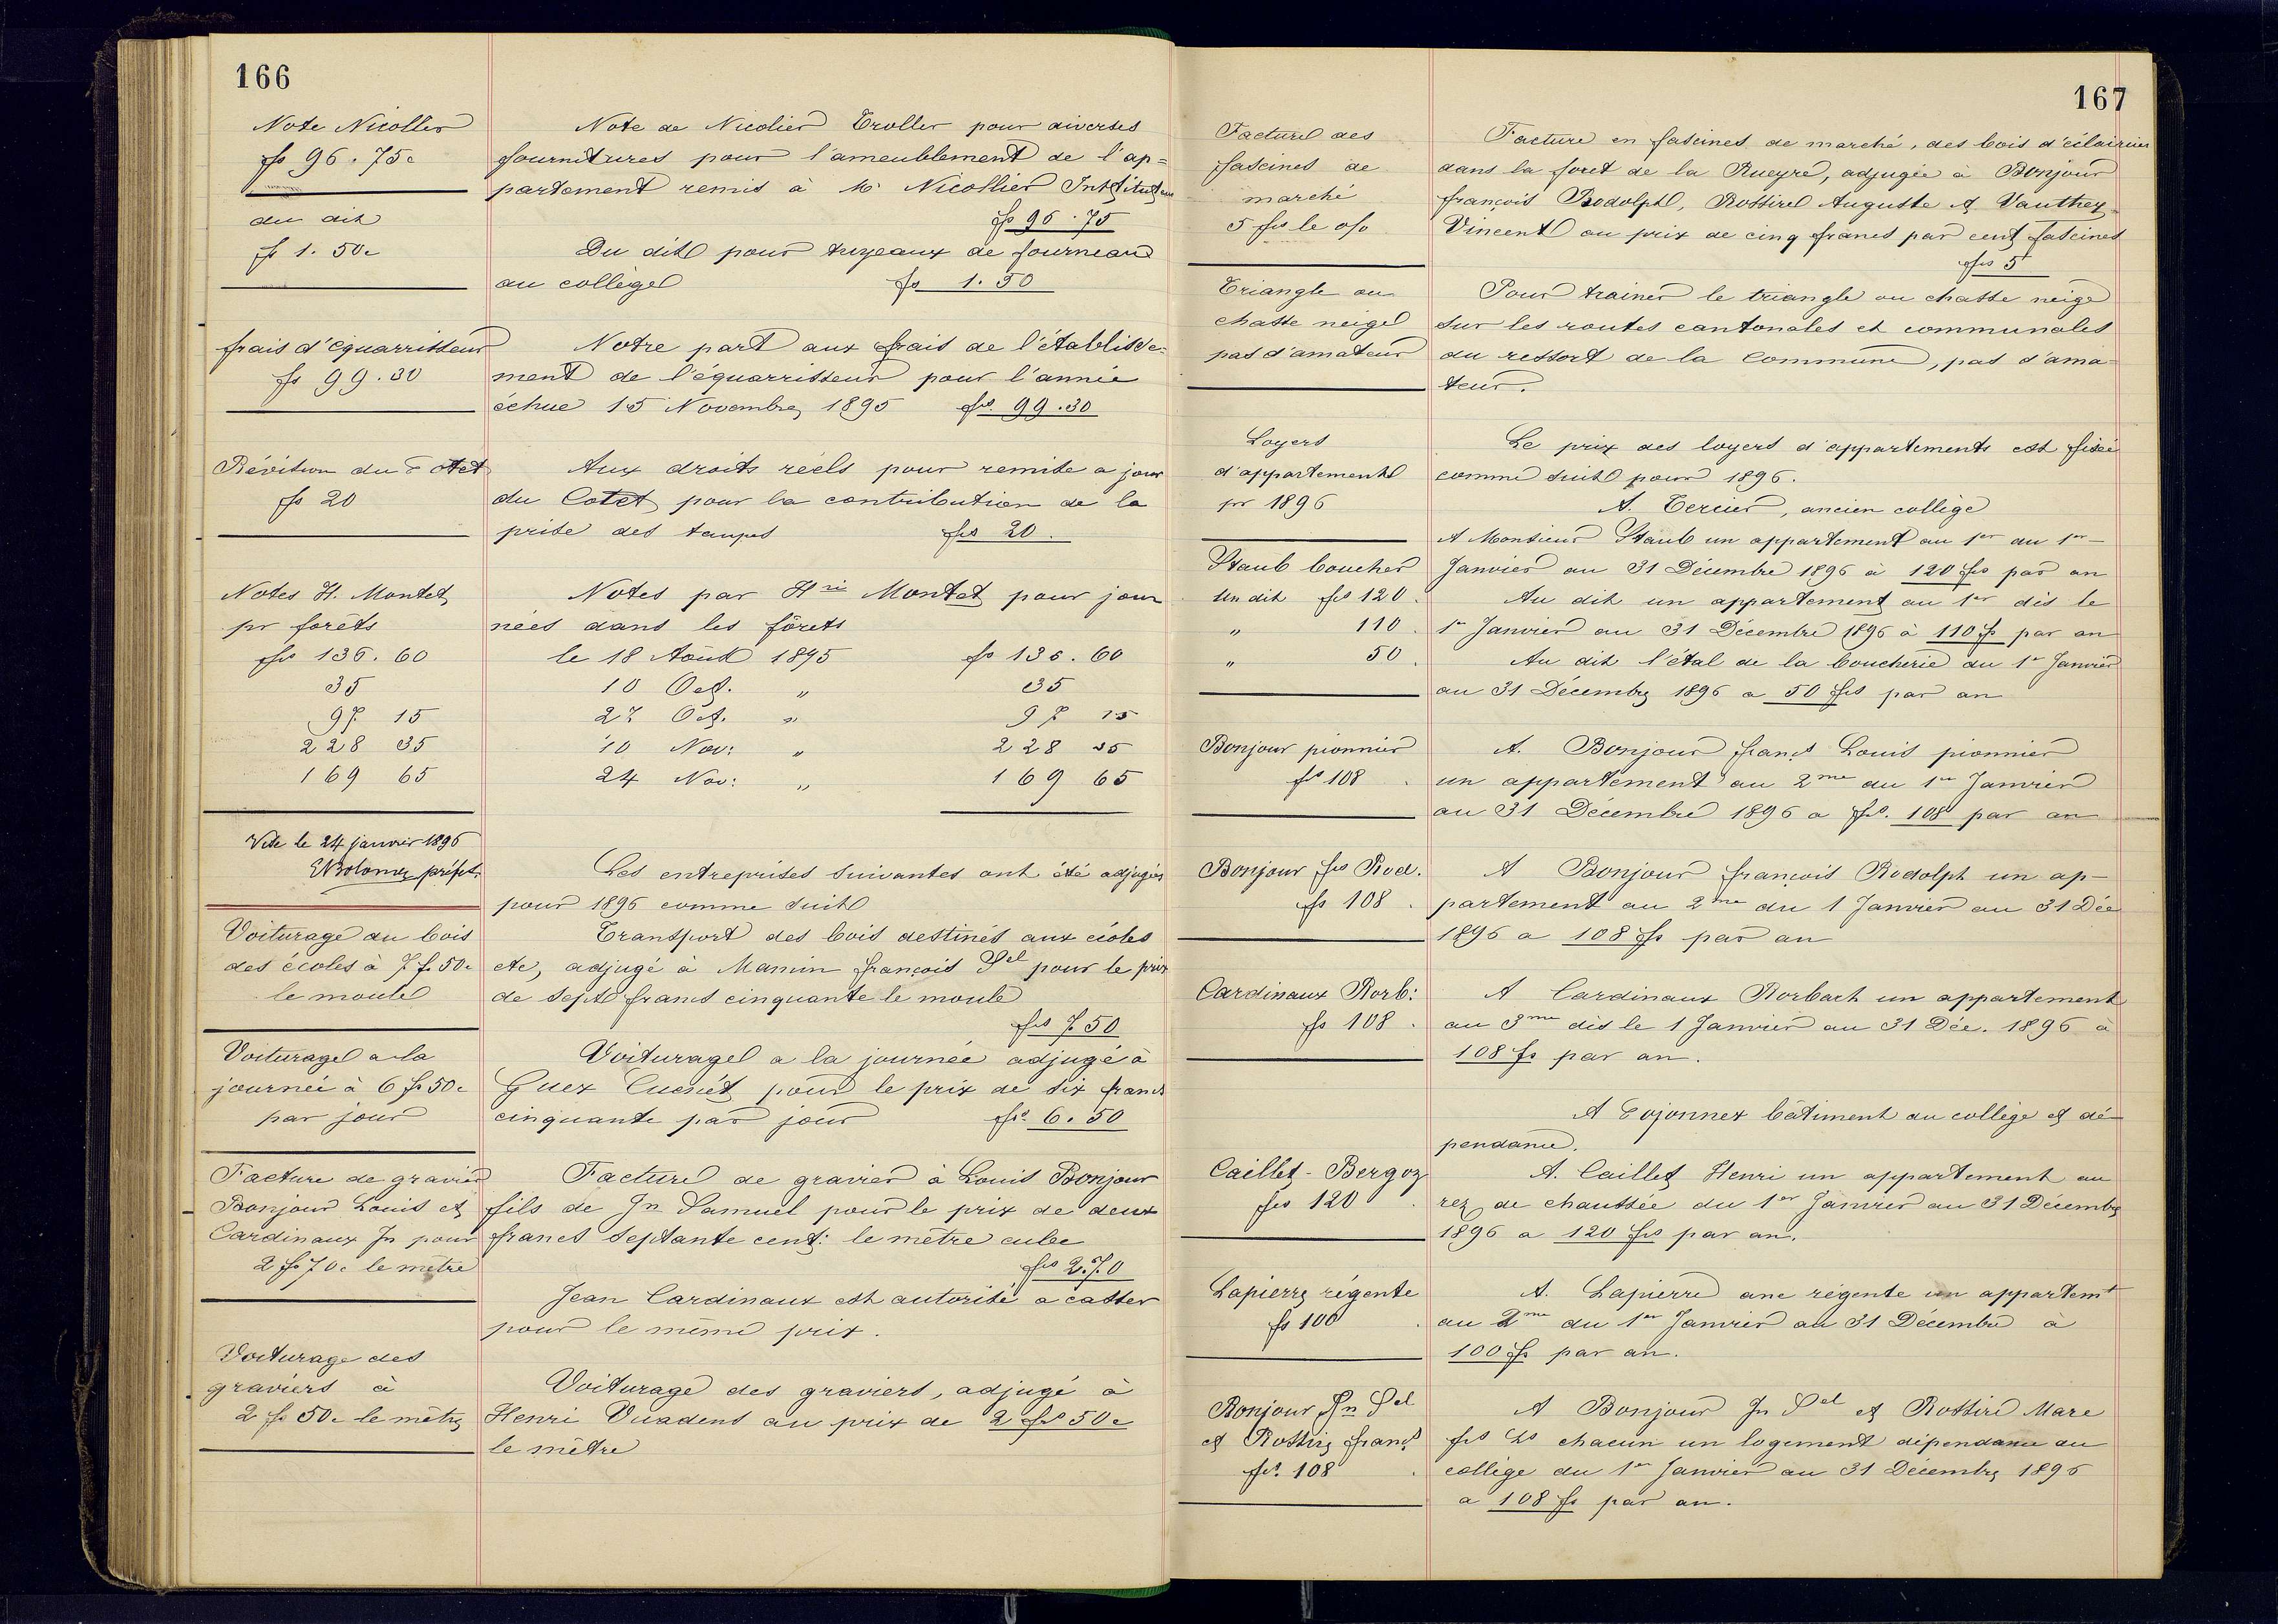 166
Note Nicollier
fs 96.75c
du dit
f 1.50c
frais d'équarrisseur
fs 99.30
Révision du
fs 20
Notes H. Montet
pr forêts
frs 136.60
35
97 15
228 35
169 65
Vu le 24 janvier 1896
préfet
Voiturage du bois
des écoles à 7 f. 50c
le moule
Voiturage a la
journée à 6 fs 50c
par jour
Facture de gravier
Bonjour Louis et
Cardinaux Jn pour
2 fs 70c le mètre
Voiturage des
graviers à
2 fs 50c le mètre
Note de Nicolier Troller pour diverses
fournitures pour l'ameublement de l'ap=
partement remis à Mr Nicollier Instituteur
fs 96.75
Du dit pour tuyeaux de fourneau
au collège fs 1.50
Notre part aux frais de l'établisse=
ment de l'équarrisseur pour l'année
échue 15 Novembre 1895 frs. 99.30
Aux droits réels pour remise a jour
du Cotet pour la contribution de la
prise des taupes frs 20.
Notes par Hri Montet pour jour
nées dans les fôrets
le 18 Août 1895 fs 136.60
10 Oct. " 35
27 Oct. " 97 15
10 Nov: " 228 35
24 Nov: " 169 65
Les entreprises suivantes ont été adjugées
pour 1896 comme suit
Transport des bois destinés aux écoles
etc, adjugé à Mamin françois Sel pour le prix
de sept francs cinquante le moule
frs 7.50
Voiturage a la journée adjugé à
Guex pour le prix de six francs
cinquante par jour frs. 6.50
Facture de gravier à Louis Bonjour
fils de Jn Samuel pour le prix de deux
francs septante cent: le mètre cube
frs 2.70
Jean Cardinaux est autorisé a casser
pour le même prix.
Voiturage des graviers, adjugé à
Henri Vuadens au prix de 2 frs 50c
le mètre
167
Facture des
fascines de
marché
5 frs le o/o
Triangle ou
chasse neige
pas d'amateur
Loyers
d'appartements
pr 1896
Staub boucher
Un dit frs 120.
" 110.
" 50.
Bonjour pionnier
fs 108.
Bonjour frs Rod.
fs 108.
Cardinaux Rorb:
fs 108.
Caillet-Bergoz
frs 120.
Lapierre régente
fs 100.
Bonjour Jn Sel
et Rossire francs
frs. 108.
Facture en fascines de marché, des bois d'éclaircies
dans la foret de la Rueyre, adjugée à Bonjour
françois Rodolph, Rossire Auguste et Vauthey
Vincent au prix de cinq francs par cent fascines
frs 5
Pour trainer le triangle ou chasse neige
sur les routes cantonales et communales
du ressort de la Commune, pas d'ama
teur.
Le prix des loyers d'appartements est fixée
comme suit pour 1896.
A. Tercier, ancien collège
A Monsieur Staub un appartement au 1er du 1er
Janvier au 31 Décembre 1896 à 120 frs par an
Au dit un appartement au 1er dès le
1er Janvier au 31 Décembre 1896 à 110 fs par an
Au dit l'étal de la boucherie du 1er Janvier
au 31 Décembre 1896 a 50 frs par an
A. Bonjour francs Louis pionnier
un appartement au 2me du 1er Janvier
au 31 Décembre 1896 a frs. 108 par an
A Bonjour françois Rodolph un ap-
partement au 2me du 1 Janvier au 31 Déc
1896 a 108 fs par an
A Cardinaux Rorbach un appartement
au 3me dès le 1 Janvier au 31 Déc. 1896 à
108 fs par an.
A Cojonnex bâtiment du collège et dé-
pendance.
A. Caillet Henri un appartement au
rez de chaussée du 1er Janvier au 31 Décembre
1896 a 120 frs par an.
A. Lapierre anc régente un appartemt
au 2me du 1er Janvier au 31 Décembre à
100 fs par an.
A Bonjour Jn Sel et Rossire Marc
frs Ls chacun un logement dépendance du
collège du 1er Janvier au 31 Décembre 1896
a 108 fs par an.